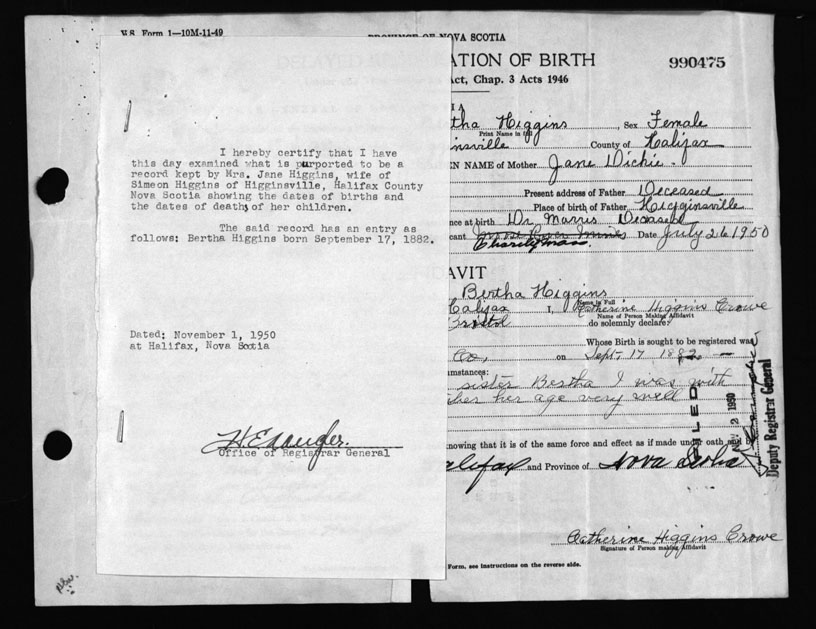 V.S. Form 1—10M-11-49
PROVINCE OF NOVA SCOTIA
ATION OF BIRTH
990475
Act, Chap. 3 Acts 1946
I hereby certify that I have
this day examined what is purported to be a
record kept by Mrs. Jane Higgins, wife of
Simeon Higgins of Higginsville, Halifax County
Nova Scotia showing the dates of births and
the dates of deaths of her children.
The said record has an entry as
follows: Bertha Higgins born September 17, 1882.
Dated: November 1, 1950
at Halifax, Nova Scotia
Office of Registrar General
tha Higgins, Sex Female
Print Name in full
nsville County of Halifax
EN NAME of Mother Jane Dickie
Present address of Father Deceased
Place of birth of Father Higginsville
nce at birth Dr Deceased
cant Moose River Mines Date July 26 1950
Mass.
AVIT
Bertha Higgins
Name in Full
Halifax I, Catherine Higgins Crowe
Name of Person Making Affidavit
Bristol do solemnly declare:
Whose Birth is sought to be registered was
Co, on Sept. 17 1882
umstances:
sister Bertha I was with
her age very well
FILED
2 1950
Deputy Registrar General
nowing that it is of the same force and effect as if made under oath and by
alifax and Province of Nova Scotia
Catherine Higgins Crowe
Signature of Person making Affidavit
Form, see instructions on the reverse side.